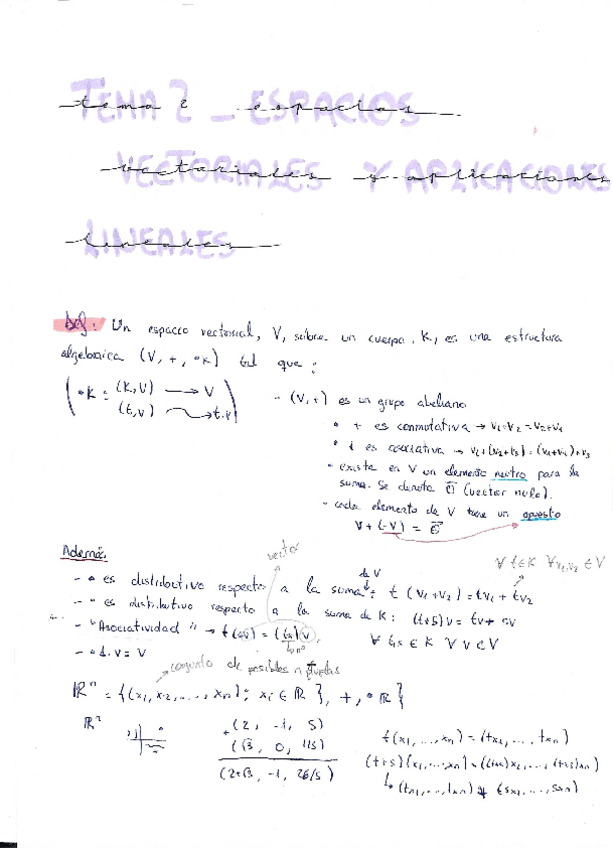 TEMA 2 - ESPACIOS
VECTORIALES Y APLICACIONES
LINEALES
Def: Un espacio vectorial, V, sobre un cuerpo, K, es una estructura
algebraica (V, +, •K) tal que:
•K : (K,V) → V
(t,v) → t·v
- (V,+) es un grupo abeliano
• + es conmutativa → v₁+v₂ = v₂+v₁
• + es asociativa → v₁+(v₂+v₃) = (v₁+v₂)+v₃
• existe en V un elemento neutro para la
suma. Se denota (vector nulo).
• cada elemento de V tiene un opuesto
V + (-V) =
Además
vector
de V
∀ t∈K ∀ v₁,v₂ ∈ V
- • es distributivo respecto a la suma: t (v₁+v₂) = tv₁ + tv₂
- • es distributivo respecto a la suma de K: (t+s)v = tv + sv
- "Asociatividad" → t(sv) = (ts)v
nº
∀ t,s ∈ K ∀ v ∈ V
- • 1.v = v
conjunto de posibles n tuplas
ℝⁿ = {(x₁, x₂, ..., xₙ): xᵢ ∈ ℝ}, +, •ℝ}
+(2, -1, 5)
(√3, 0, 1/5)
(2+√3, -1, 26/5)
t(x₁, ..., xₙ) = (tx₁, ..., txₙ)
(t+s)(x₁, ..., xₙ) = ((t+s)x₁, ..., (t+s)xₙ)
(tx₁, ..., txₙ) + (sx₁, ..., sxₙ)